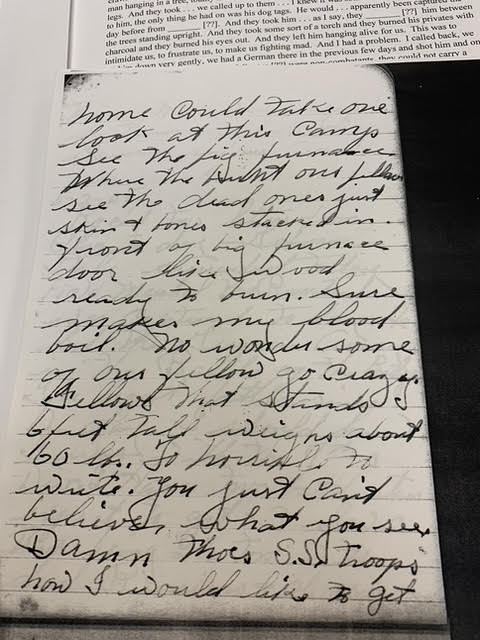 man hanging in a tree, today
legs. And they took we called up to them . . . I knew it was
to him, the only thing he had on was his dog tags. He would . . . apparently been captured the
day before from ________ [??]. And they took him . . . as I say, they ________ [??] him between
the trees standing upright. And they took some sort of a torch and they burned his privates with
charcoal and they burned his eyes out. And they left him hanging alive for us. This was to
intimidate us, to frustrate us, to make us fighting mad. And I had a problem. I called back, we
him down very gently, we had a German there in the previous few days and shot him and on
[??] were non-combatants, they could not carry a
home Could take one
look at this Camp
see the big furnace
Where the burnt our fellows
see the dead ones just
skin + bones stacked in
front of big furnace
door like Wood
ready to burn. Sure
makes my blood
boil. No wonder some
of our fellow go Crazy.
Fellows that stands
6 feet tall weighs about
60 lbs. So horrible to
write. You just Can't
believe what you see.
Damn thoes S.S. troops
how I would like to get